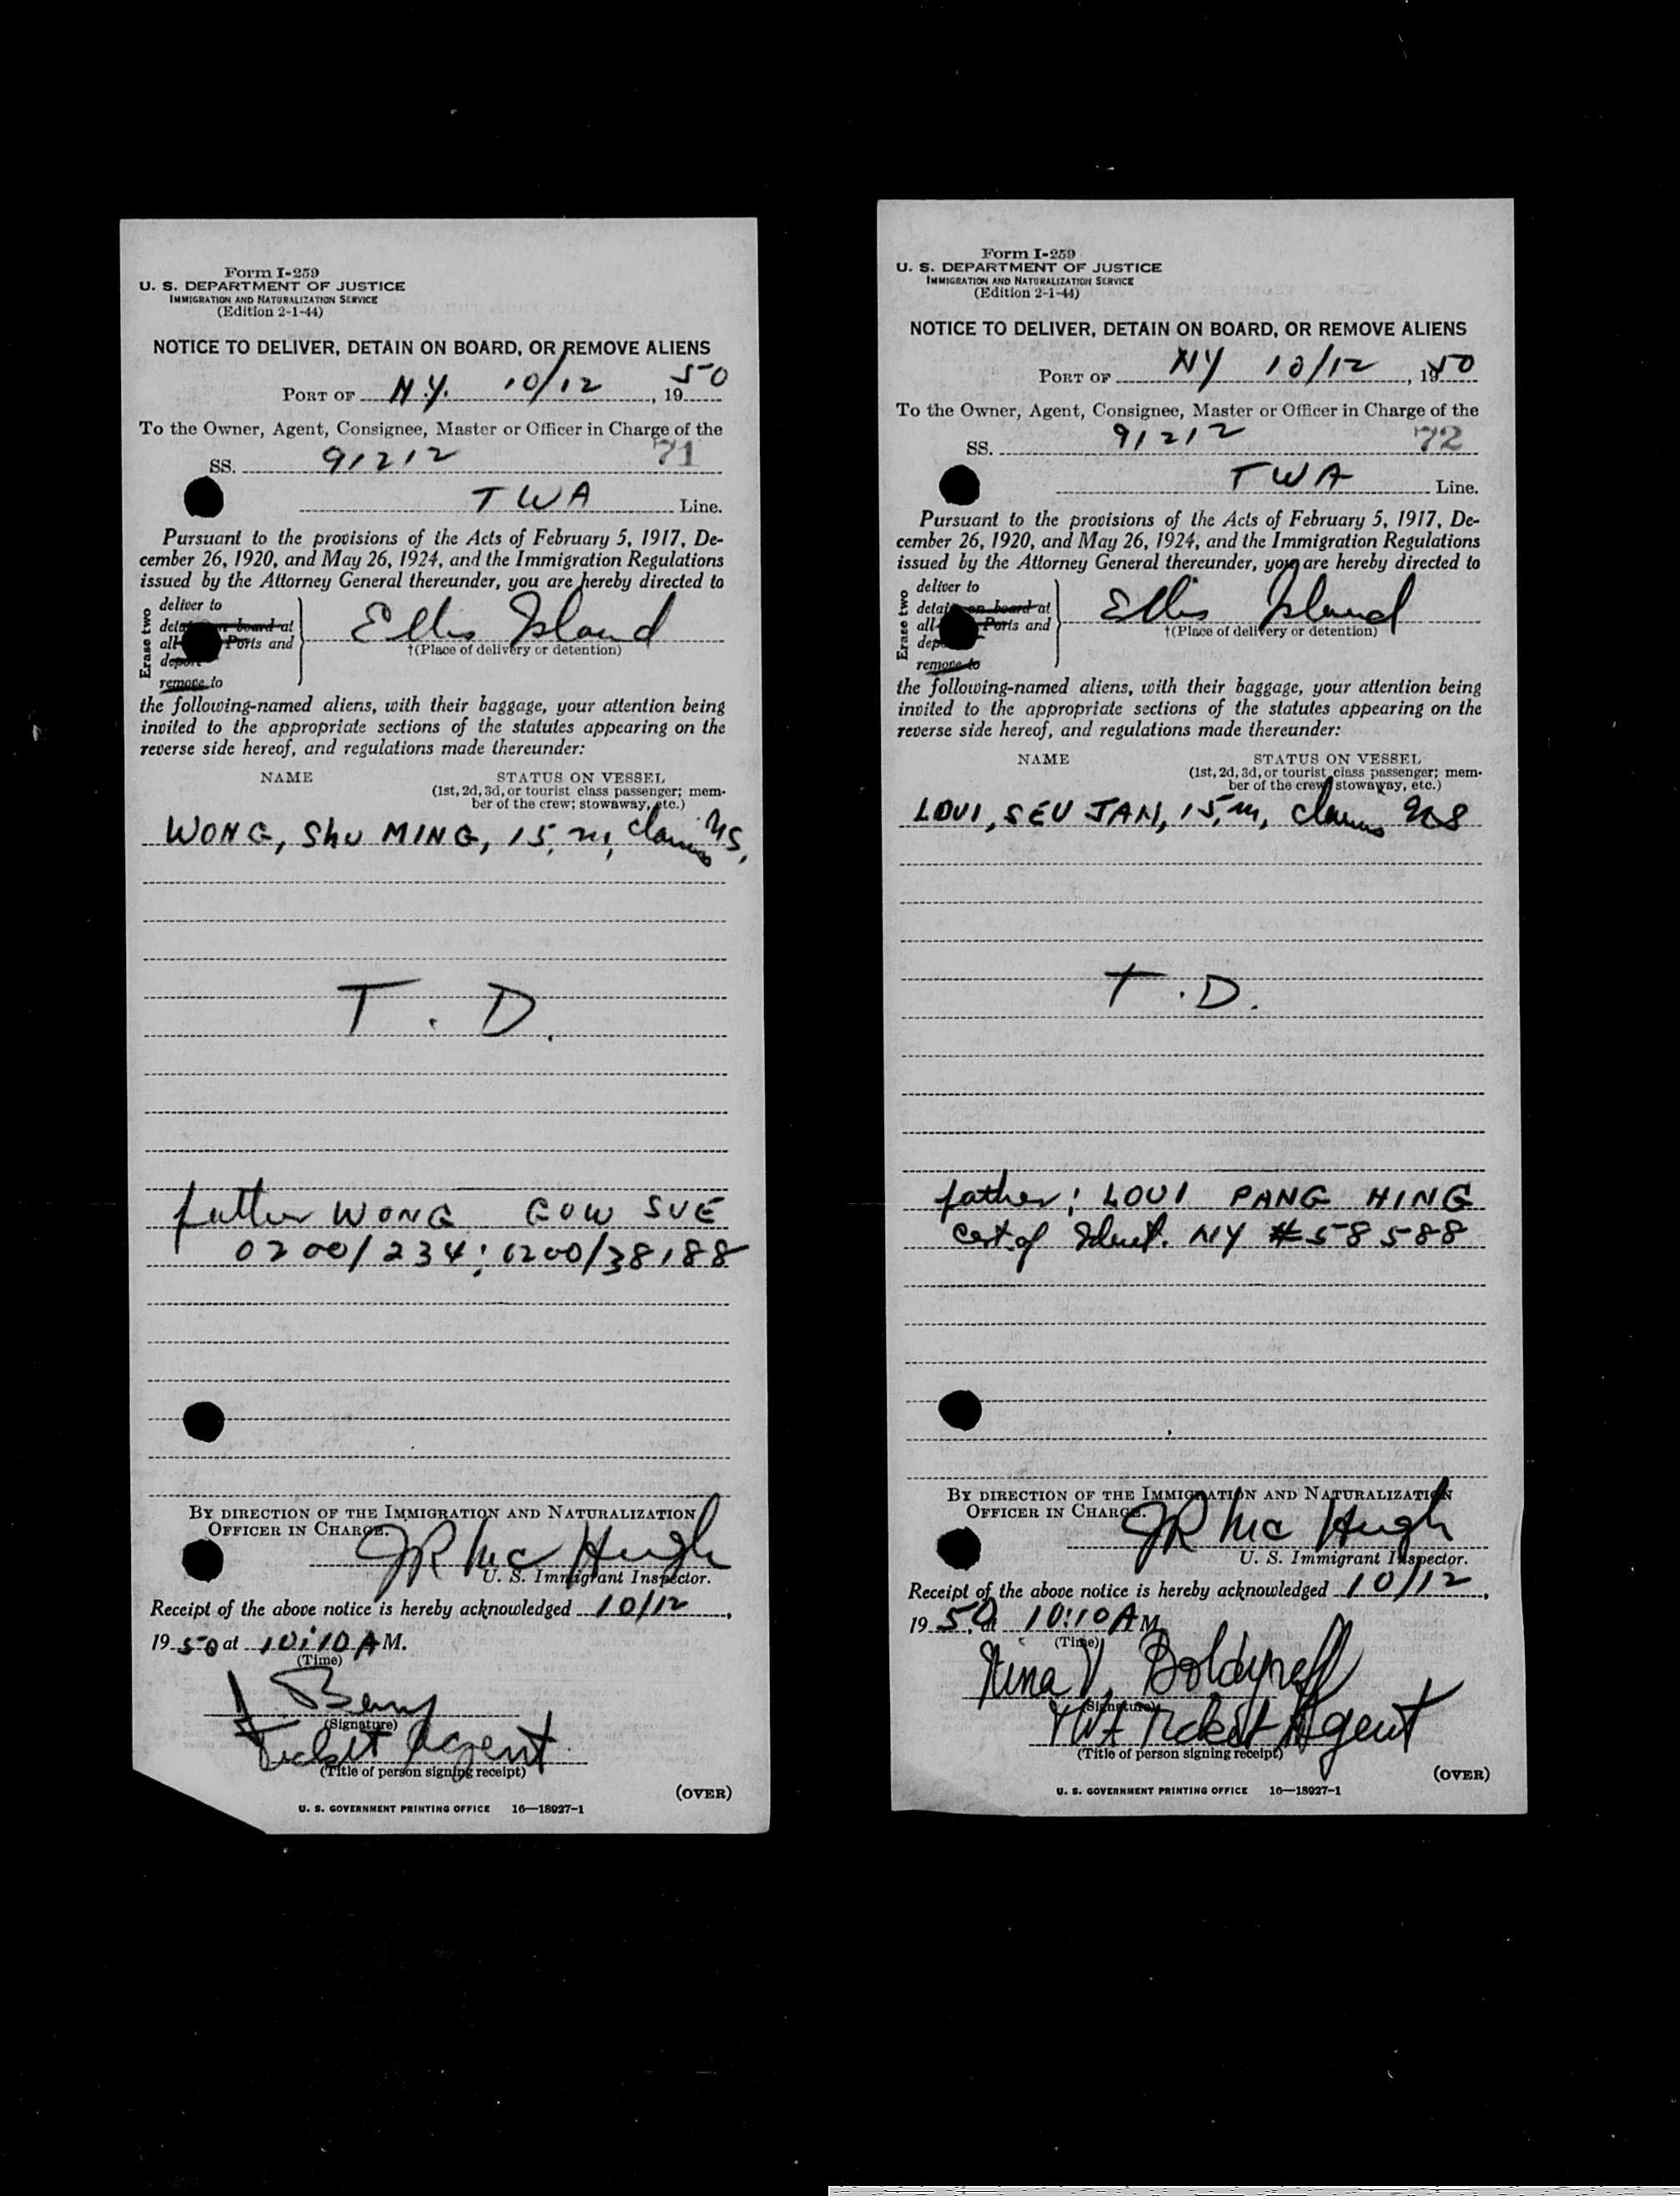 Form I-259
U. S. DEPARTMENT OF JUSTICE
IMMIGRATION AND NATURALIZATION SERVICE
(Edition 2-1-44)
NOTICE TO DELIVER, DETAIN ON BOARD, OR REMOVE ALIENS
PORT OF N.Y. 10/12, 1950
To the Owner, Agent, Consignee, Master or Officer in Charge of the
SS. 91212 71
TWA Line.
Pursuant to the provisions of the Acts of February 5, 1917, De-
cember 26, 1920, and May 26, 1924, and the Immigration Regulations
issued by the Attorney General thereunder, you are hereby directed to
Erase two
deliver to
on board at
all Ports and
deport
remove to
Ellis Island
†(Place of delivery or detention)
the following-named aliens, with their baggage, your attention being
invited to the appropriate sections of the statutes appearing on the
reverse side hereof, and regulations made thereunder:
NAME STATUS ON VESSEL
(1st, 2d, 3d, or tourist class passenger; mem-
ber of the crew; stowaway, etc.)
WONG, Shu MING, 15, m, claims US,
T. D.
father WONG GOW SUE
0200/234; 0200/38188
BY DIRECTION OF THE IMMIGRATION AND NATURALIZATION
OFFICER IN CHARGE.
JR McHugh
U. S. Immigrant Inspector.
Receipt of the above notice is hereby acknowledged 10/12,
1950 at 10:10 A M.
(Time)
(Signature)
Ticket Agent
(Title of person signing receipt)
(OVER)
U. S. GOVERNMENT PRINTING OFFICE 16—18927-1
Form I-259
U. S. DEPARTMENT OF JUSTICE
IMMIGRATION AND NATURALIZATION SERVICE
(Edition 2-1-44)
NOTICE TO DELIVER, DETAIN ON BOARD, OR REMOVE ALIENS
PORT OF NY 10/12, 1950
To the Owner, Agent, Consignee, Master or Officer in Charge of the
SS. 91212 72
TWA Line.
Pursuant to the provisions of the Acts of February 5, 1917, De-
cember 26, 1920, and May 26, 1924, and the Immigration Regulations
issued by the Attorney General thereunder, you are hereby directed to
Erase two
deliver to
on board at
all Ports and
remove to
Ellis Island
†(Place of delivery or detention)
the following-named aliens, with their baggage, your attention being
invited to the appropriate sections of the statutes appearing on the
reverse side hereof, and regulations made thereunder:
NAME STATUS ON VESSEL
(1st, 2d, 3d, or tourist class passenger; mem-
ber of the crew; stowaway, etc.)
LOUI, SEU JAN, 15, m, claims
T. D.
father: LOUI PANG HING
Cert. of Ident. NY #58588
BY DIRECTION OF THE IMMIGRATION AND NATURALIZATION
OFFICER IN CHARGE.
JR McHugh
U. S. Immigrant Inspector.
Receipt of the above notice is hereby acknowledged 10/12,
1950, at 10:10 A M.
(Time)
Nina V. Boldyreff
(Signature)
TWA Ticket Agent
(Title of person signing receipt)
(OVER)
U. S. GOVERNMENT PRINTING OFFICE 16—18927-1